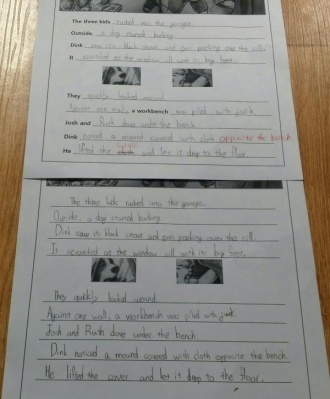 The three kids rushed into the garage.
Outside, a dog started barking.
Dink saw its black crown and eyes peeking over the sill.
It scratched at the window sill with its big feet.
They quickly looked around.
Against one wall, a workbench was piled with junk.
Josh and Ruth dove under the bench.
Dink noticed a mound covered with cloth opposite the bench.
He lifted the and let it drop to the floor.
The three kids rushed into the garage.
Outside, a dog started barking.
Dink saw its black crown and eyes peeking over the sill.
It scratched at the window sill with its big feet.
They quickly looked around.
Against one wall, a workbench was piled with junk.
Josh and Ruth dove under the bench
Dink noticed a mound covered with cloth opposite the bench.
He lifted the cover and let it drop to the floor.